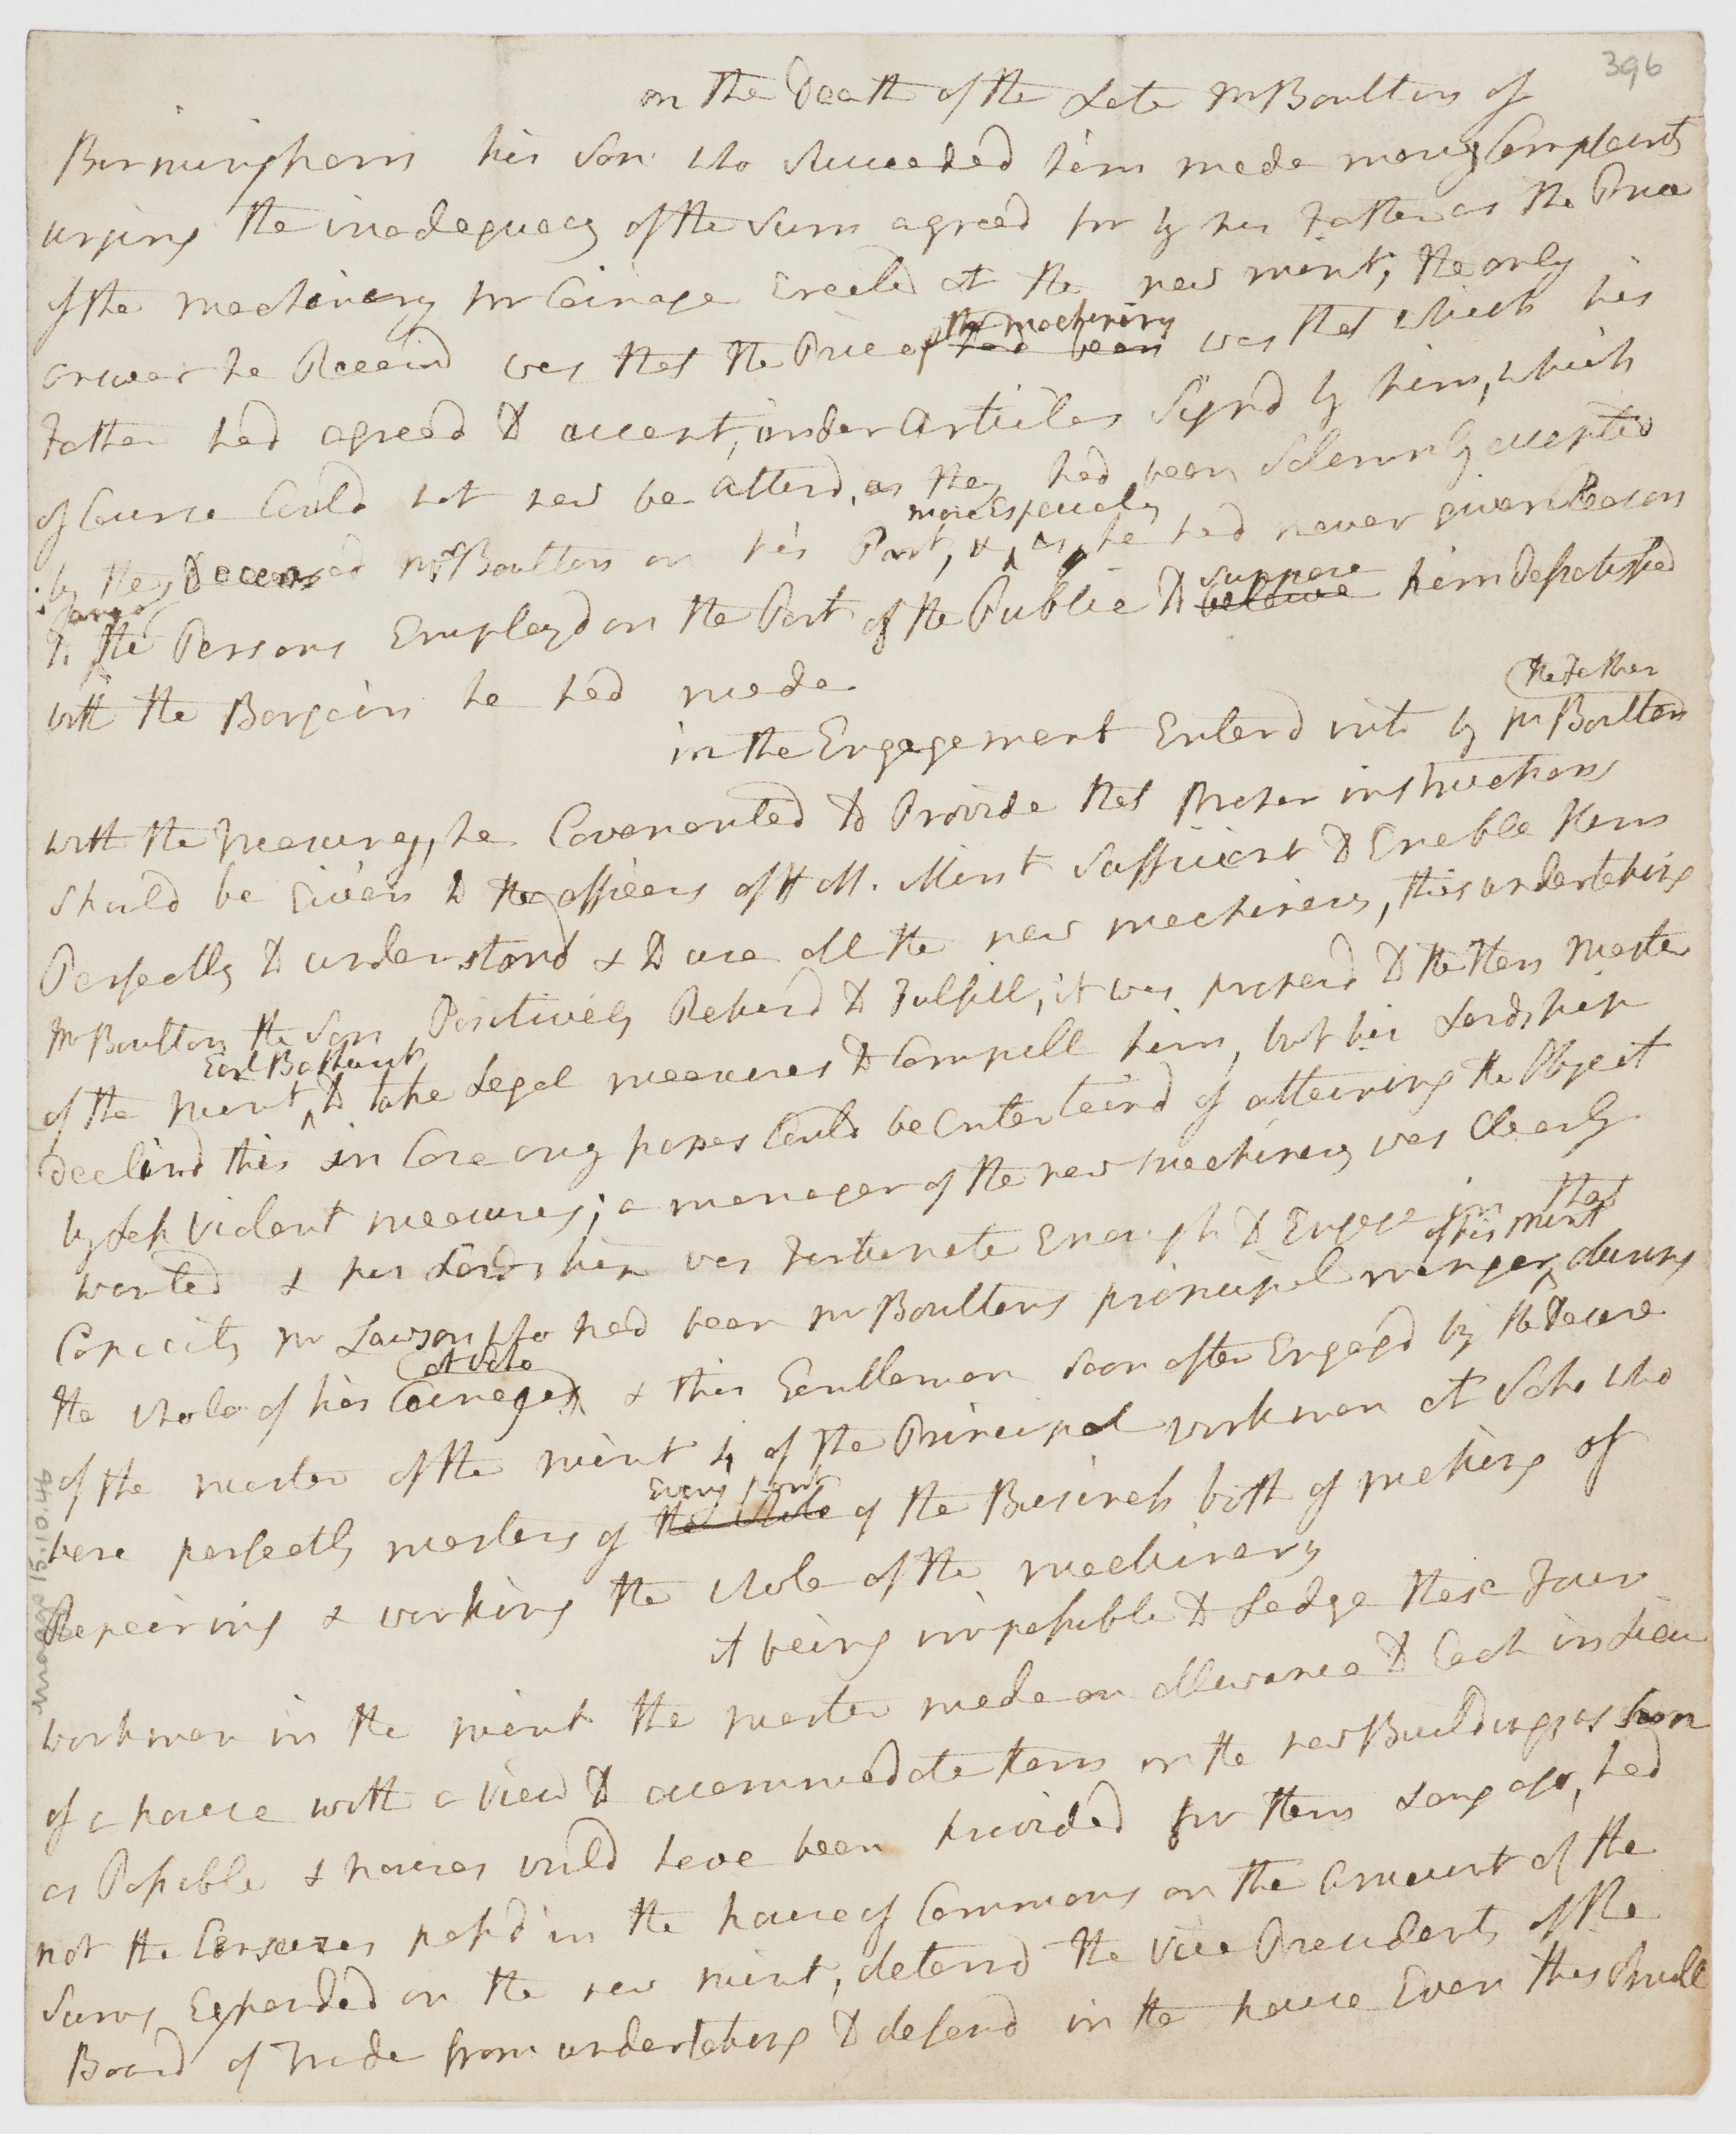 396
on the Death of the Late Mr Boulton of
Birmingham his Son who Succeeded him made many Complaints
urging the inadequacy of the Sum agreed for by his Father as the Price
of the machinery for Coinage Erected at the new mint, the only
answer he Receivd was that the Price of had been the machinery was that which his
Father had agreed to accept, under Articles Signd by him, which
of Course Could not now be alterd, as they had been Solemnly accepted
by the Deceasd Mr Boulton on his Part, & more Especialy as he had never given Reason
to the Persons Employd on the Part of the Public to believe suppose him dissatisfied
with the Bargain he had made
in the Engagement Enterd into by Mr Boulton the Father
with the Treasury, he Covenanted to Provide that proper instructions
should be Given to the officers of H M. Mint Sufficient to Enable them
Perfectly to understand & to use all the new machinery, this undertaking
Mr Boulton the Son Positively Refusd to Fulfill, it was proposd to the then Master
of the mint Earl Bathurst to take Legal measures to Compell him, but his Lordship
declind this in Case any hopes Could be Entertaind of attaining the Object
by Less Violent measures; a manager of the new machinery was Clearly
wanted & his Lordship was Fortunate Enough to Engage in that
Capacity Mr Lawson who had been Mr Boultons principal manger of his mint during
the whole of his Coinages at Soho & this Gentleman soon after Engagd by the Desire
of the master of the mint 4 of the Principal workmen at Soho who
were perfectly masters of the whole Every part of the Business both of making of
Repairing & working the whole of the machinery
it being impossible to Lodge these Four
workmen in the mint the master made an allowance to Each in Lieu
of a house with a view to accommodate them in the new Buildings as soon
as Possible & houses would have been provided for them Long ago, had
not the Censures passd in the house of Commons on the amount of the
Sums Expended on the new mint, deterrd the Vice Presidents of the
Board of Trade from undertaking to defend in the house Even this Small